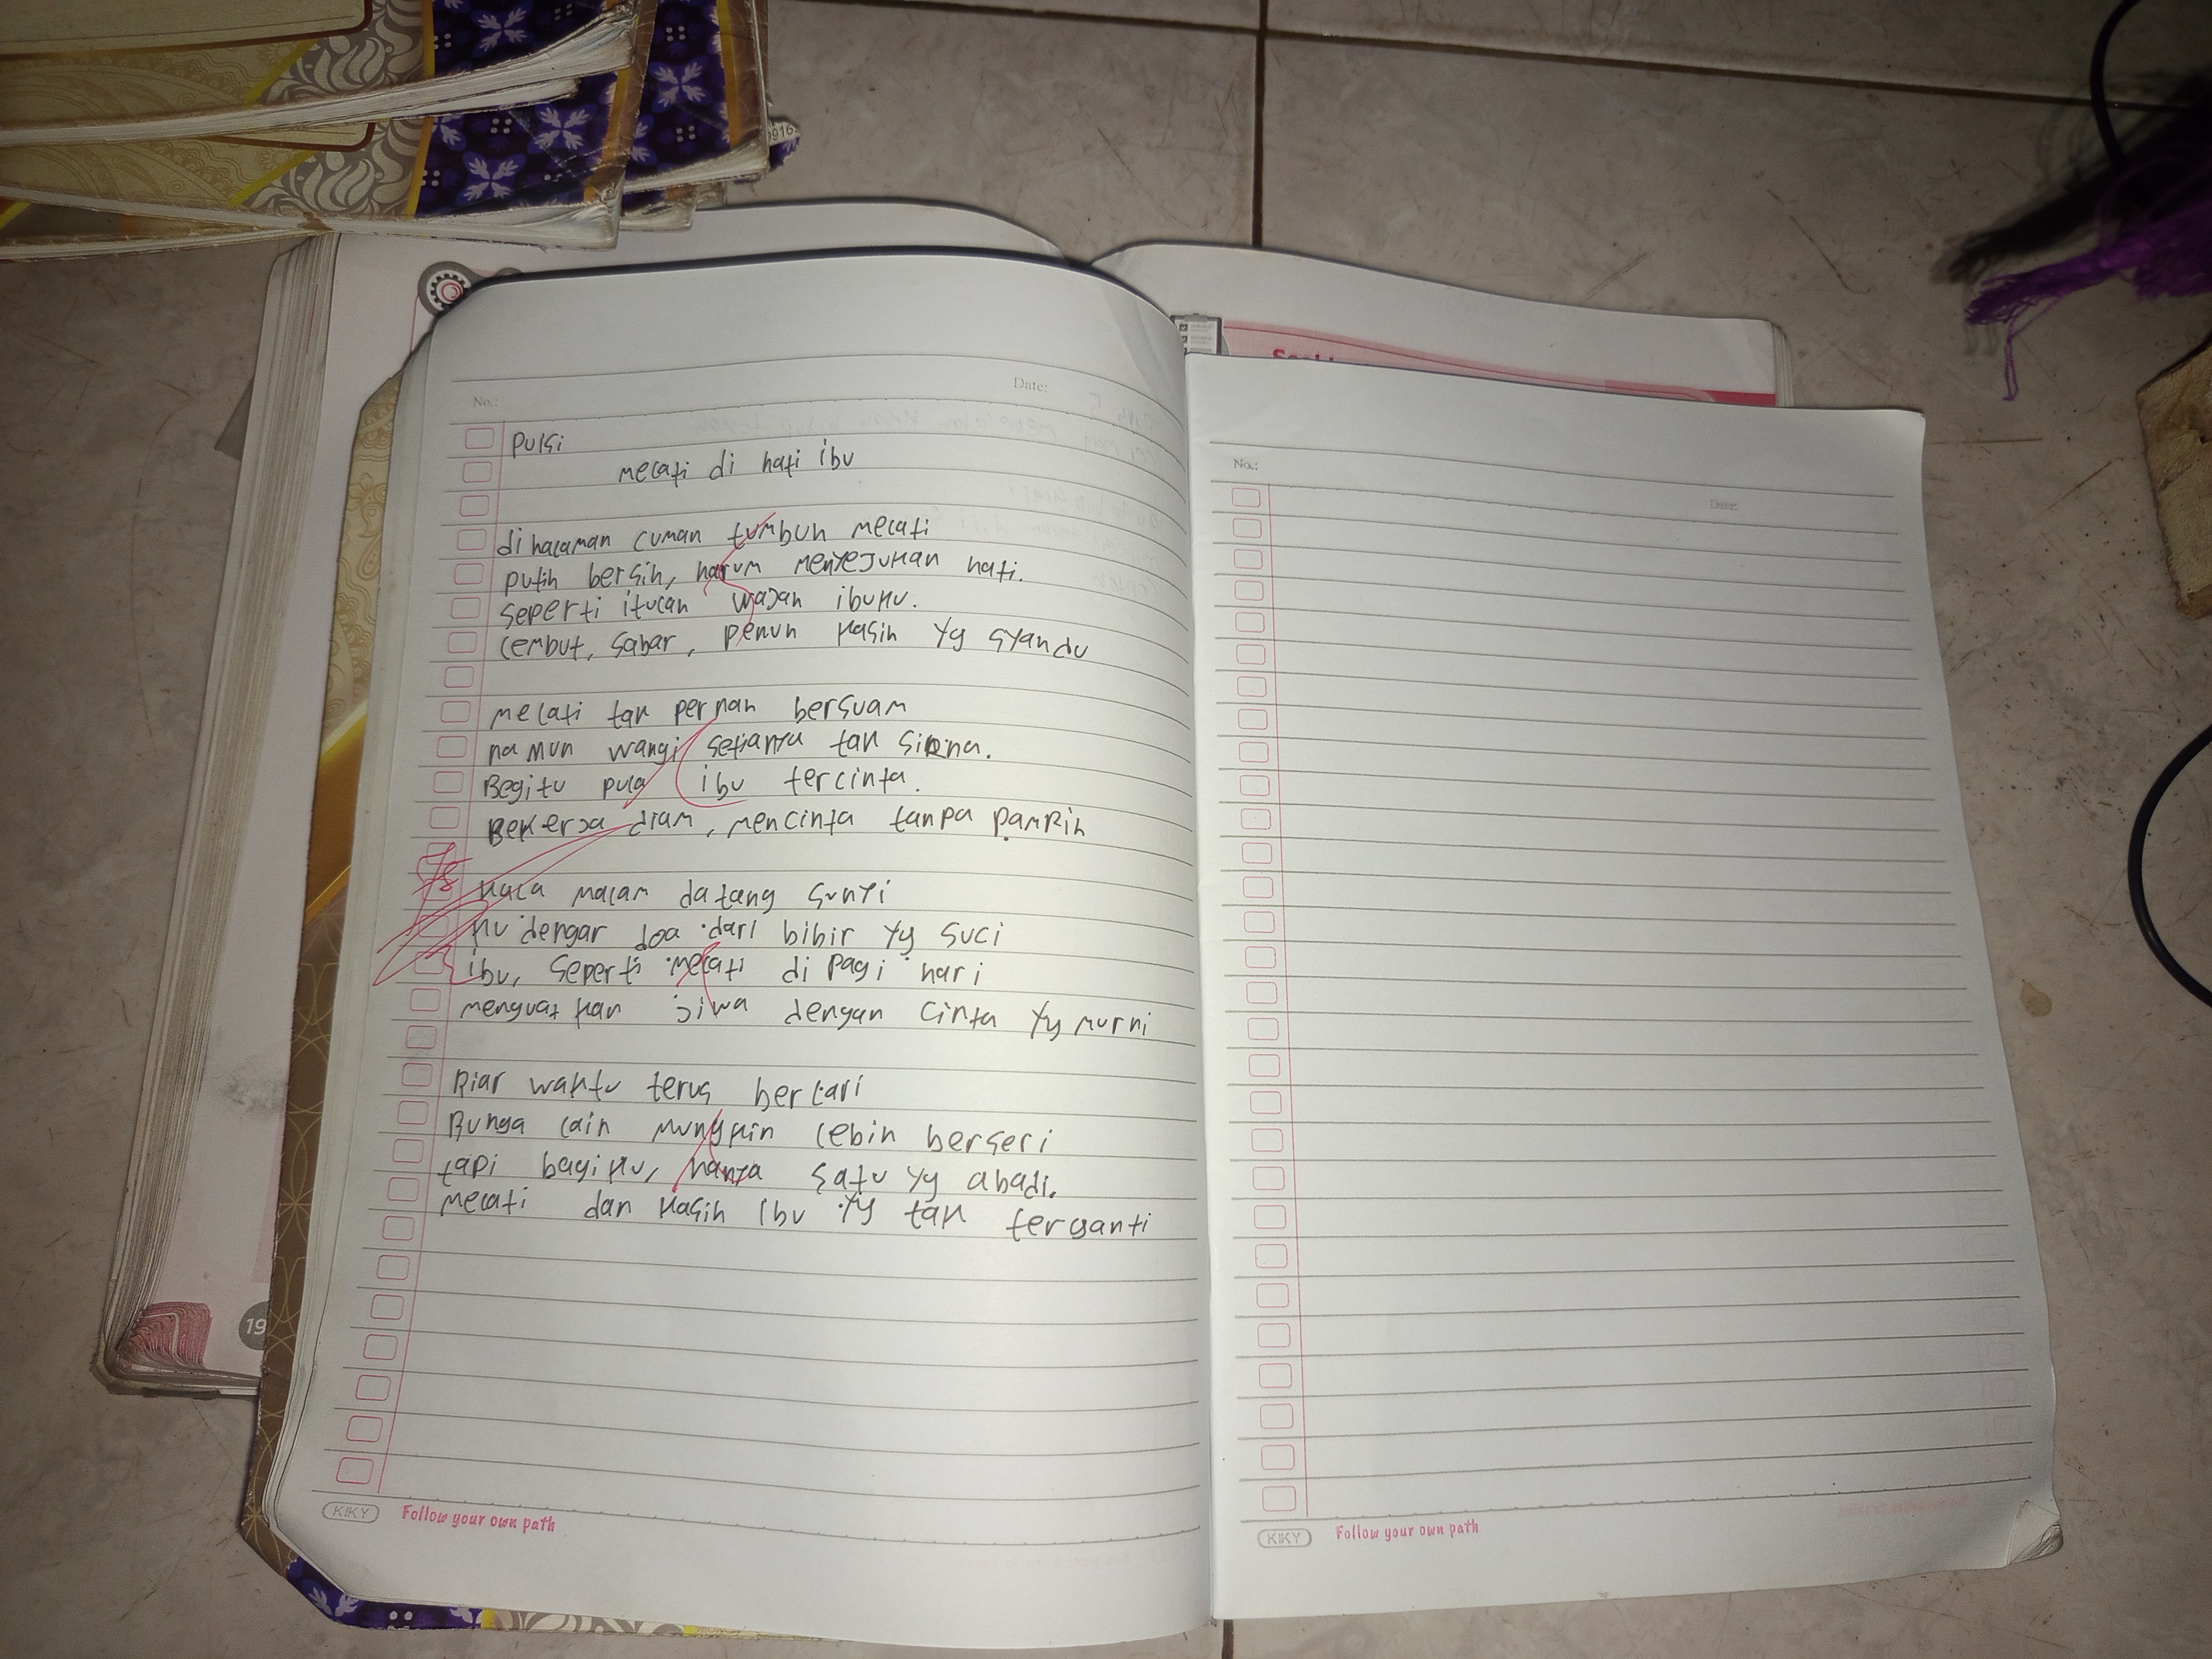 09165
No.:
Date:
Puisi
melati di hati ibu
di halaman cuman tumbuh melati
putih bersih, harum menyejukan hati.
seperti itulah wajah ibuku.
lembut, sabar, penuh kasih yg syandu
melati tak pernah bersuam
namun wangi setianya tak sirna.
Begitu pula ibu tercinta.
Bekerja diam, mencinta tanpa pamrih
kala malam datang sunyi
ku dengar doa dari bibir yg suci
ibu, seperti melati di pagi hari
menguatkan jiwa dengan cinta yg murni
Biar waktu terus berlari
Bunga lain mungkin lebih berseri
tapi bagiku, hanya satu yg abadi.
melati dan kasih ibu yg tak terganti
19
KIKY Follow your own path
No.:
Date:
KIKY Follow your own path